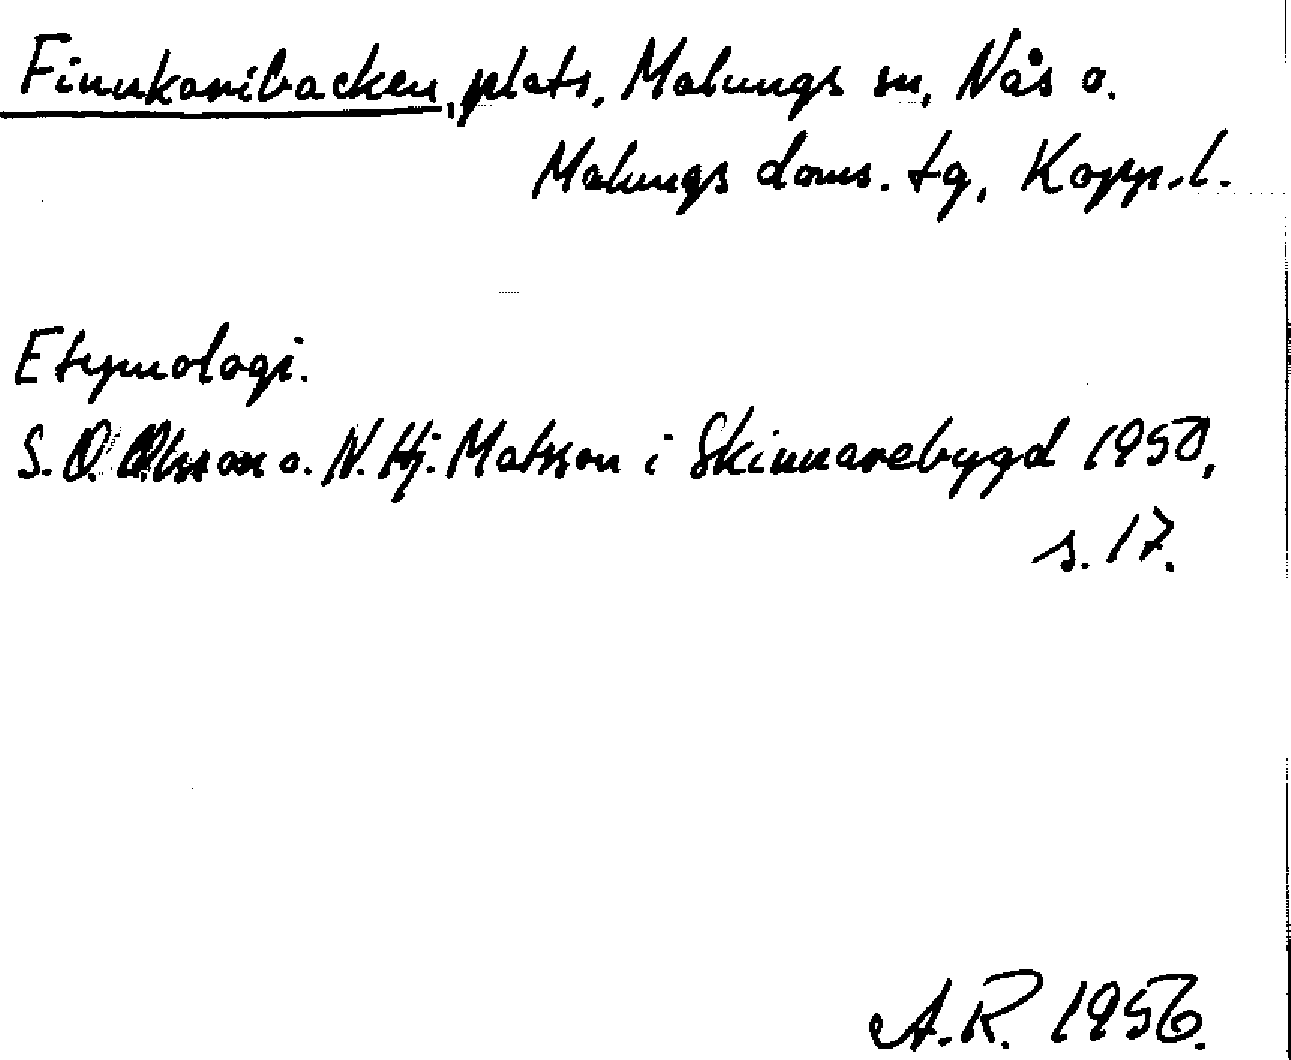 Finnkaribacken, plats, Malungs sn, Nås o.
Malungs doms. tg, Kopp. l.
Etymologi.
S. O. Olsson o. N. Hj. Matsson i Skinnarebygd 1950,
s. 17.
A. R. 1956.